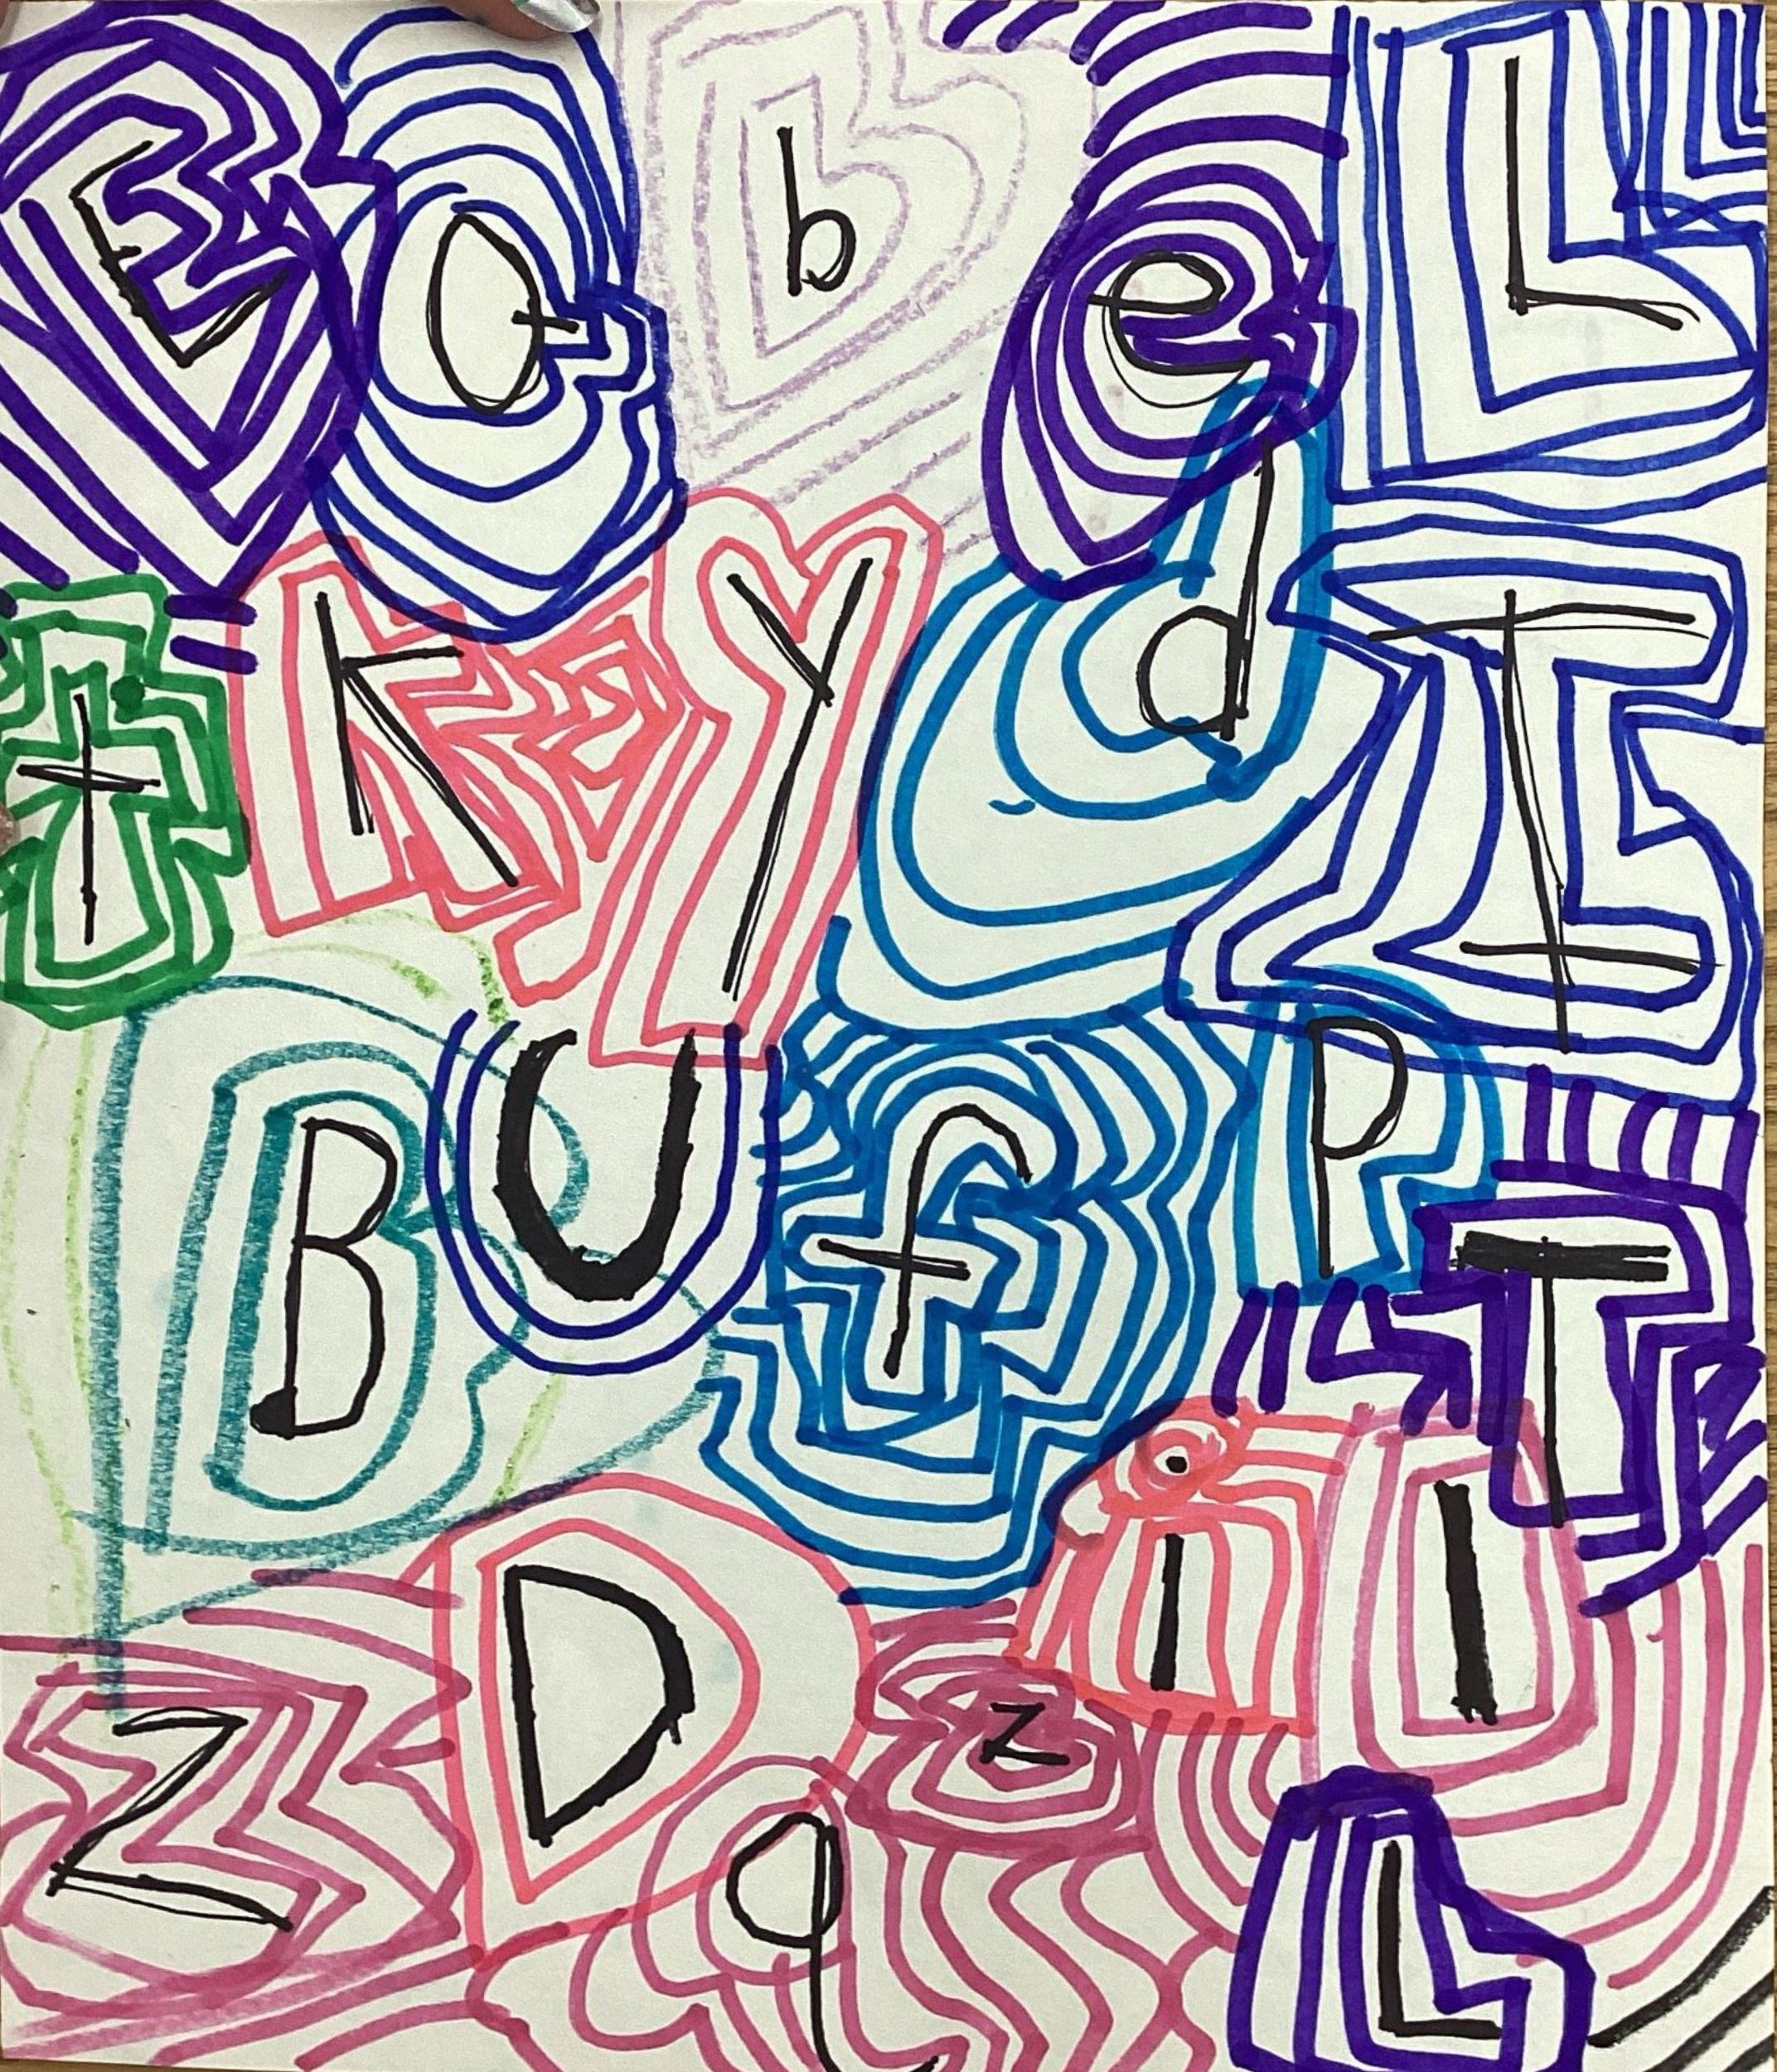 E a b e L
t K y d I
B U f P T
Z D q z i l L